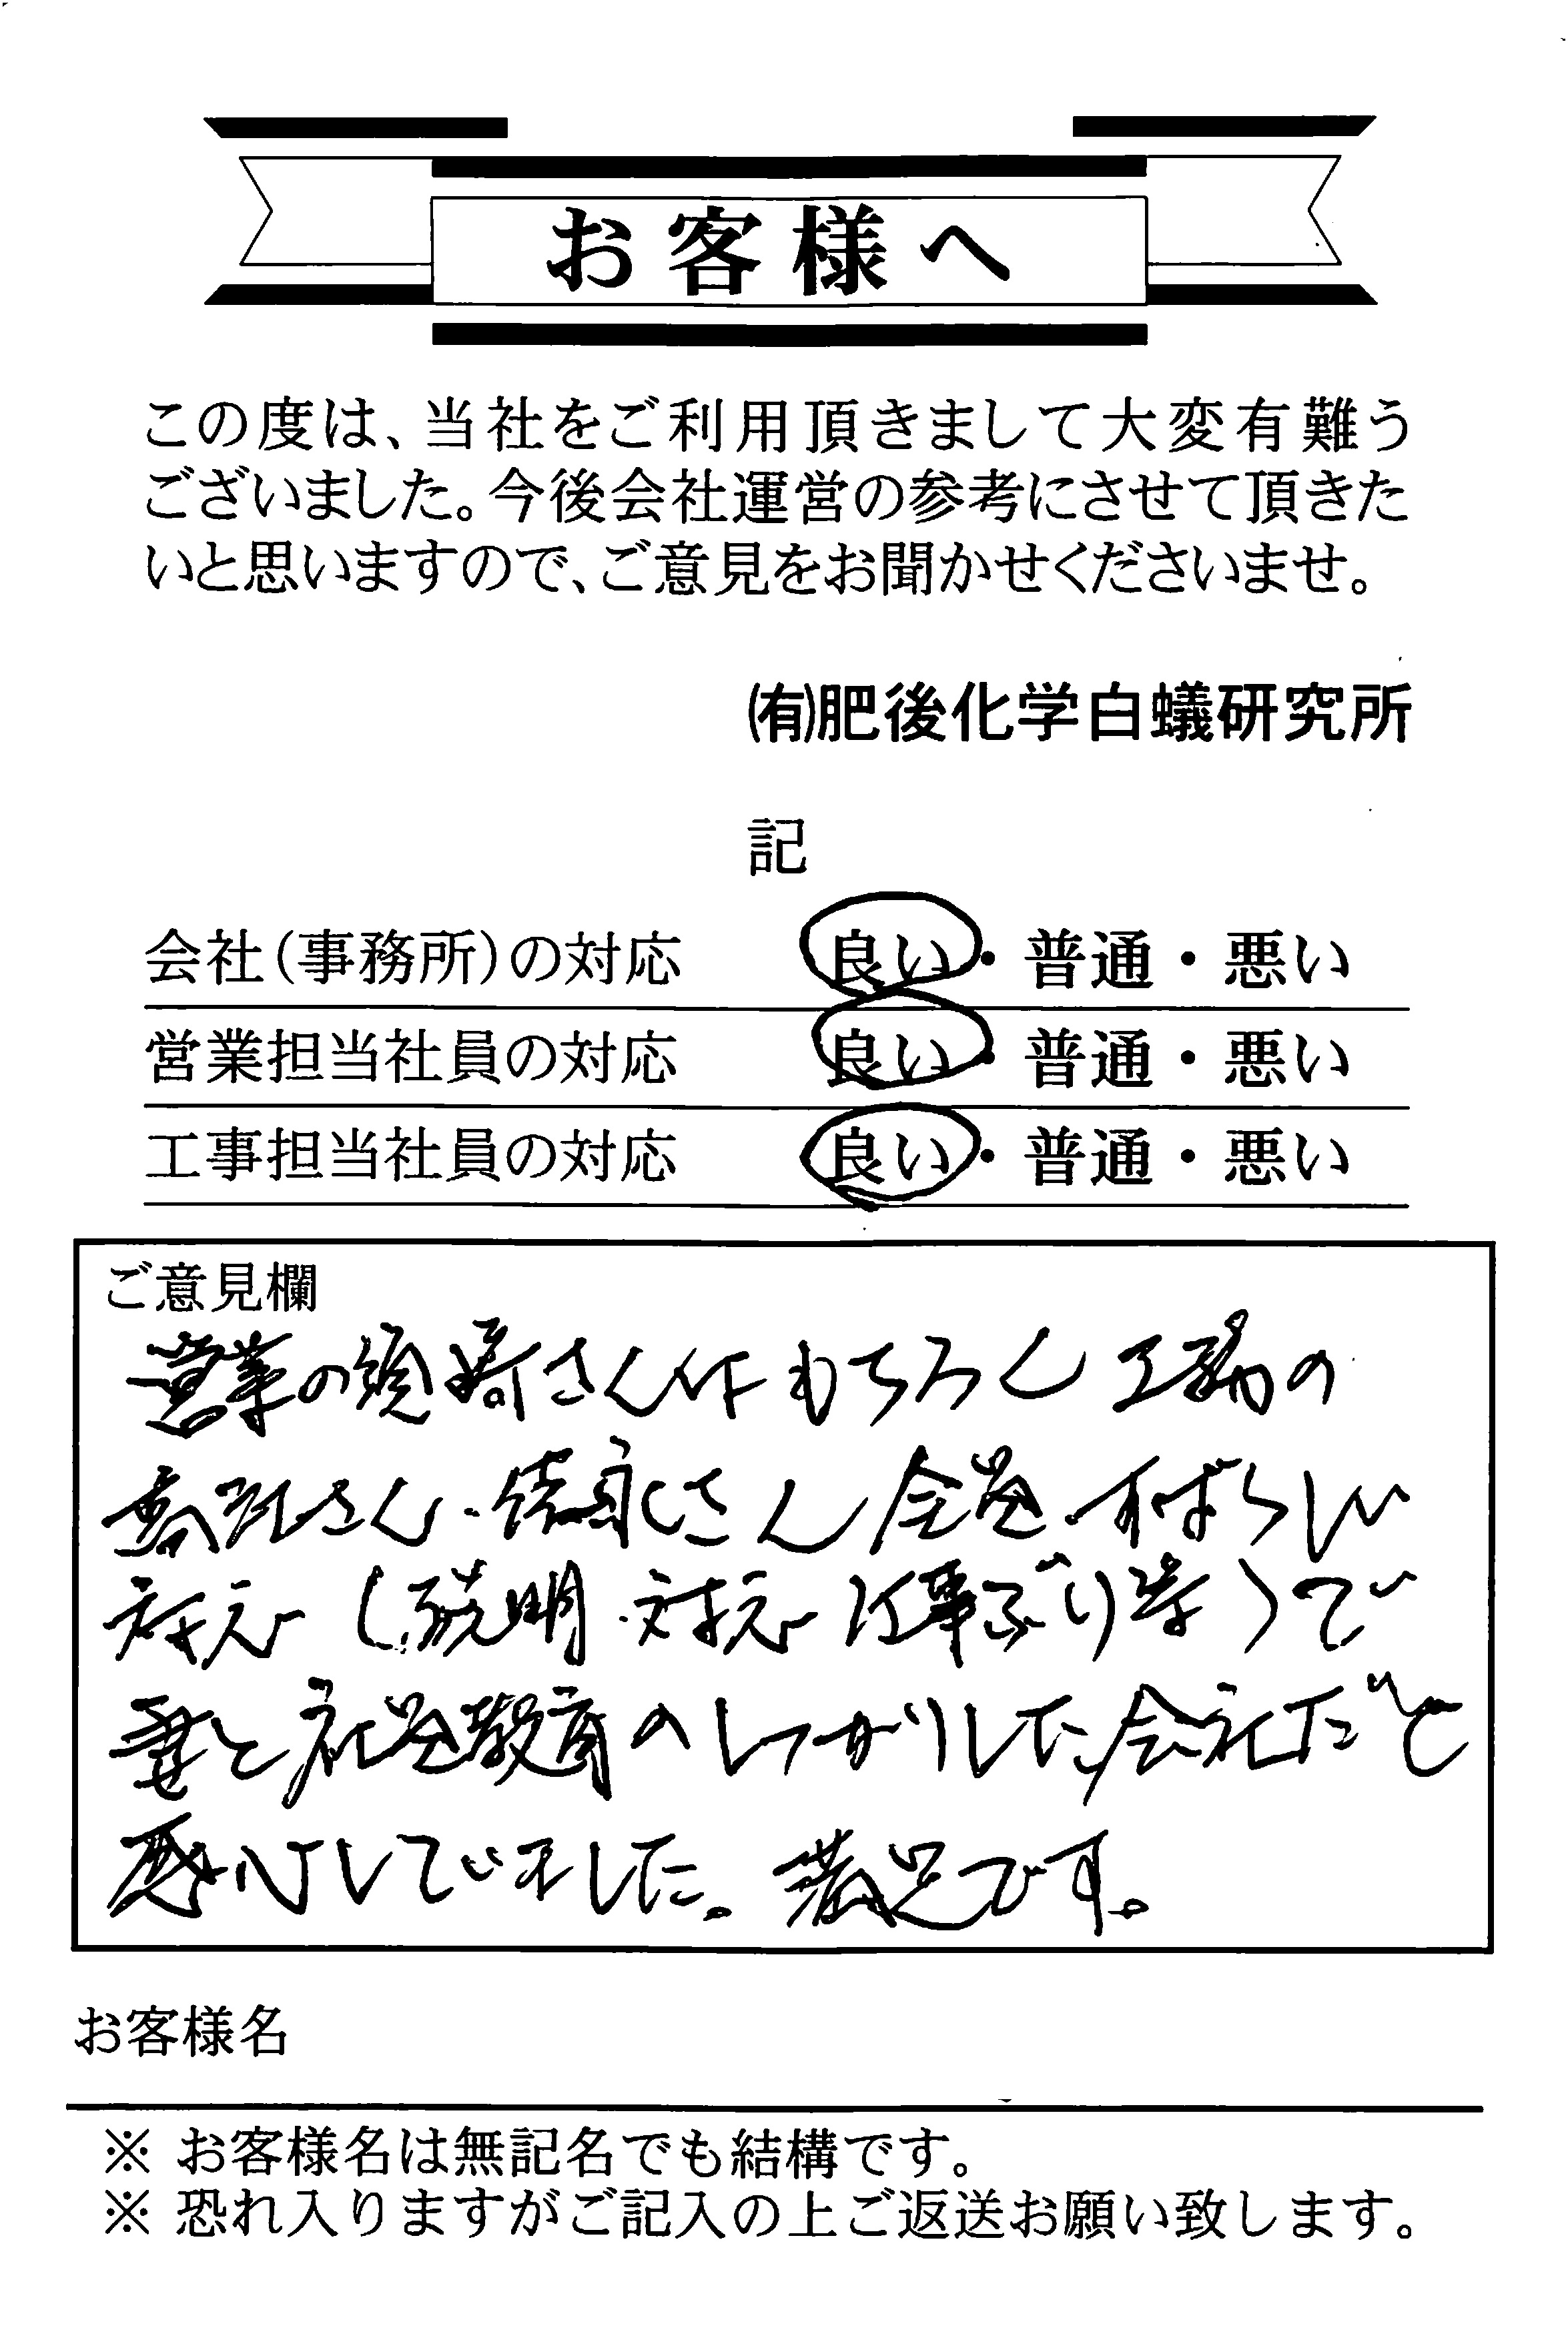 お客様へ
この度は、当社をご利用頂きまして大変有難う
ございました。今後会社運営の参考にさせて頂きた
いと思いますので、ご意見をお聞かせくださいませ。
㈲肥後化学白蟻研究所
記
会社(事務所)の対応 良い・普通・悪い
営業担当社員の対応 良い・普通・悪い
工事担当社員の対応 良い・普通・悪い
ご意見欄
営業の須崎さんはもちろん工務の
さん・徳永さん全員すばらしい
対応(説明・対応 仕事ぶり等)で
と社員教育のしっかりした会社だと
感心していました。満足です。
お客様名
※ お客様名は無記名でも結構です。
※ 恐れ入りますがご記入の上ご返送お願い致します。